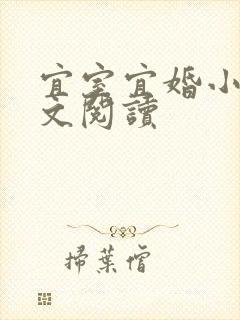 宜室宜婚小
文閱讀
掃葉僧